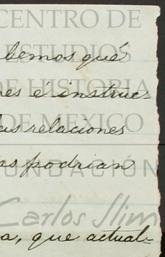 CENTRO DE
ESTUDIOS
bemos que
DE HISTORIA
es é instruc-
las relaciones
DE MEXICO
as podrian
FUNDACION
Carlos Slim
a, que actual-